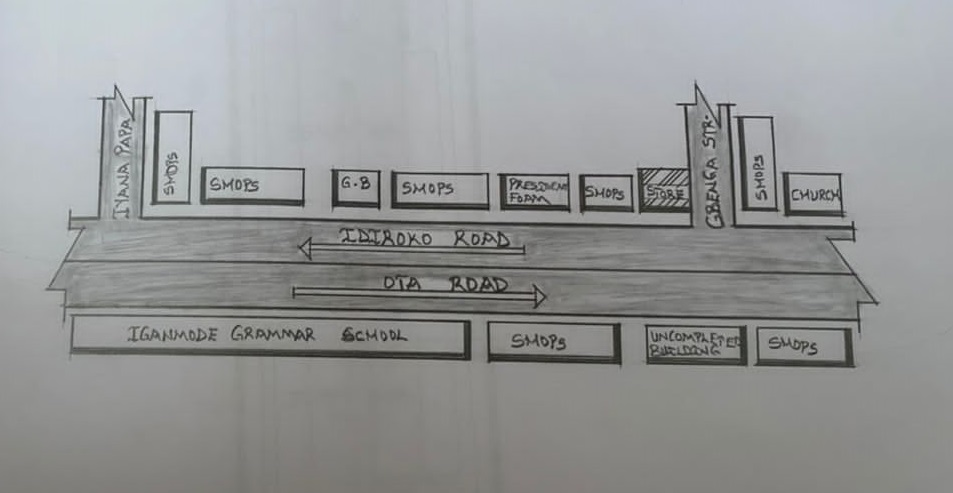 IYANA PAPA
SHOPS
SHOPS
G.B
SHOPS
PRESIDENT
FOAM
SHOPS
STORE
GBENGA STR.
SHOPS
CHURCH
IDIROKO ROAD
OTA ROAD
IGANMODE GRAMMAR SCHOOL
SHOPS
UNCOMPLETED
BUILDING
SHOPS